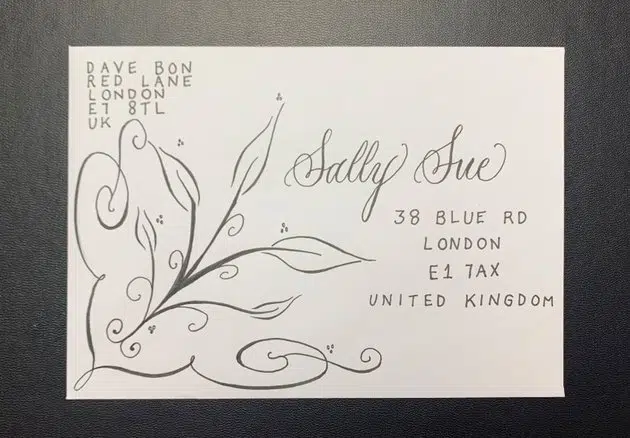 DAVE BON
RED LANE
LONDON
E1 8TL
UK
Sally Sue
38 BLUE RD
LONDON
E1 7AX
UNITED KINGDOM